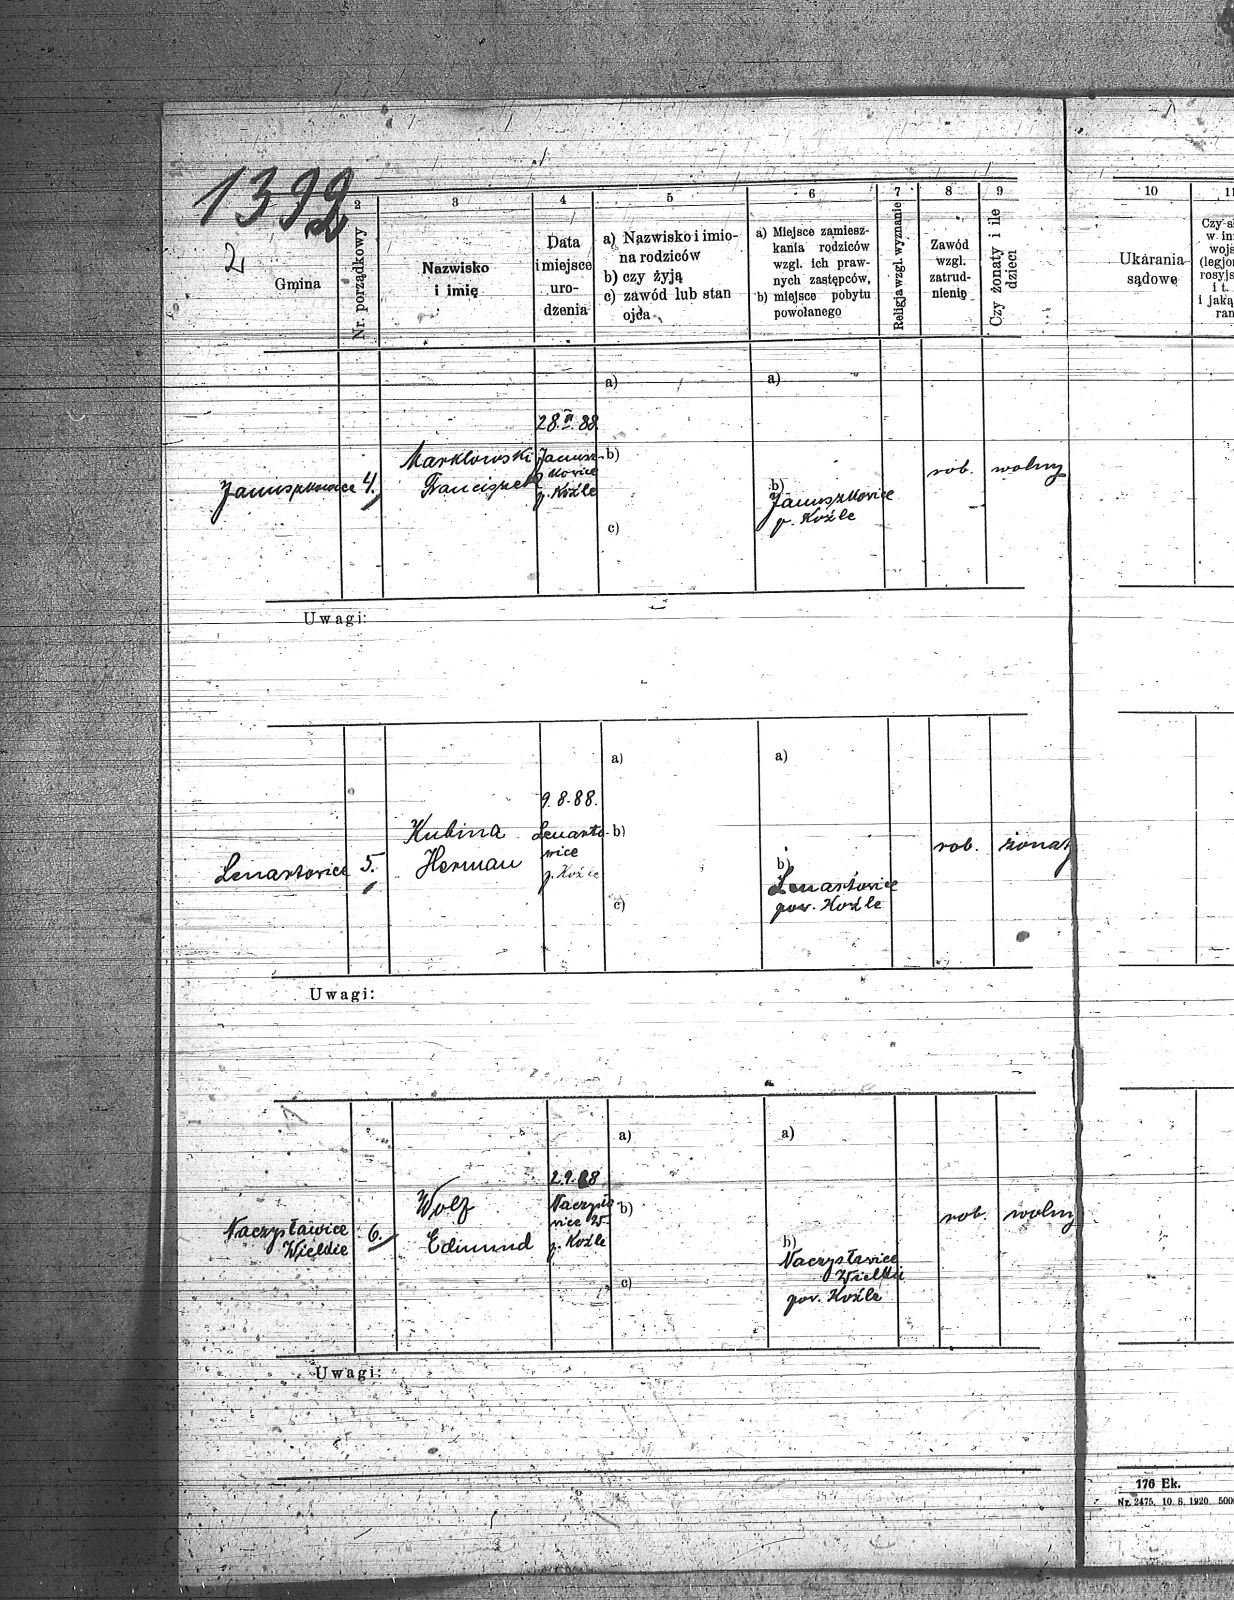 1392
2
2 3 4 5 6 7 8 9 10 11
Gmina
Nr. porządkowy
Nazwisko
i imię
Data
i miejsce
uro-
dzenia
a) Nazwisko i imio-
na rodziców
b) czy żyją
c) zawód lub stan
ojca
a) Miejsce zamiesz-
kania rodziców
wzgl. ich praw-
nych zastępców,
b) miejsce pobytu
powołanego
Religja wzgl. wyznanie
Zawód
wzgl.
zatrud-
nienie
Czy żonaty i ile
dzieci
Ukarania
sądowe
Czy sł
w in
wojs
(legjon
rosyjs
i t.
i jaką
ran
Januszkowice 4.
Marklowski
Franciszek
28. 88
Janusz-
kowice
p. Koźle
a)
b)
c)
a)
b)
Januszkowice
p. Koźle
rob. wolny
Uwagi:
Lenartowice 5.
Kubina
Herman
9.8.88.
Lenarto-
wice
p. Koźle
a)
b)
c)
a)
b)
Lenartowice
pow. Koźle
rob. żonaty
Uwagi:
Naczysławice
Wielkie
6.
Wolf
Edmund
2.9.88
Naczysła
wice W.
p. Koźle
a)
b)
c)
a)
b)
Naczysławice
Wielkie
pow. Koźle
rob. wolny
Uwagi:
176 Ek.
Nr. 2475. 10. 8. 1920. 5000